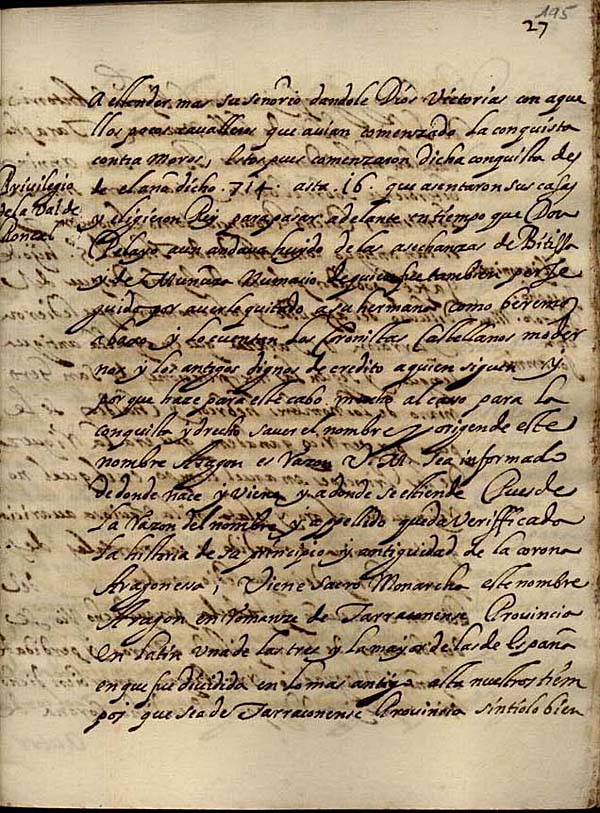 195
27
A estender mas su señorio dandole Dios Victorias con aque
llos pocos cavalleros que avian comenzado la conquista
contra Moros, Estos pues comenzaron dicha conquista des
de el año dicho .714. asta .16. que asentaron sus casas
Privilegio
de la Val de
Roncal
y eligieron Rey para pasar adelante en tiempo que Don
Pelayo aun andava huido de las asechanzas de Bitissa
y de Munuza de quien fue tambien perse
guido por averle quitado a su hermana como beremos
abaxo y lo cuentan las Cronicas Castellanos moder
nos y los antigos dignos de credito a quien siguen y
por que haze para este cabo mucho al caso para la
conquista y drecho saver el nombre y origen de este
nombre Aragon es Razon V. M. sea informado
de donde nace y viene y a donde se estiende Pues de
la Razon del nombre y appellido queda Verifficada
la historia de su principio y antiguidad de la corona
Aragonessa; Viene Sacro Monarcha este nombre
Aragon en Romanze de Tarraconense Provincia
en latin una de las tres y la mayor de las de España
en que fue dividida en lo mas antigo asta nuestros tiem
pos que sea de Tarraconense Provincia sintiolo bien